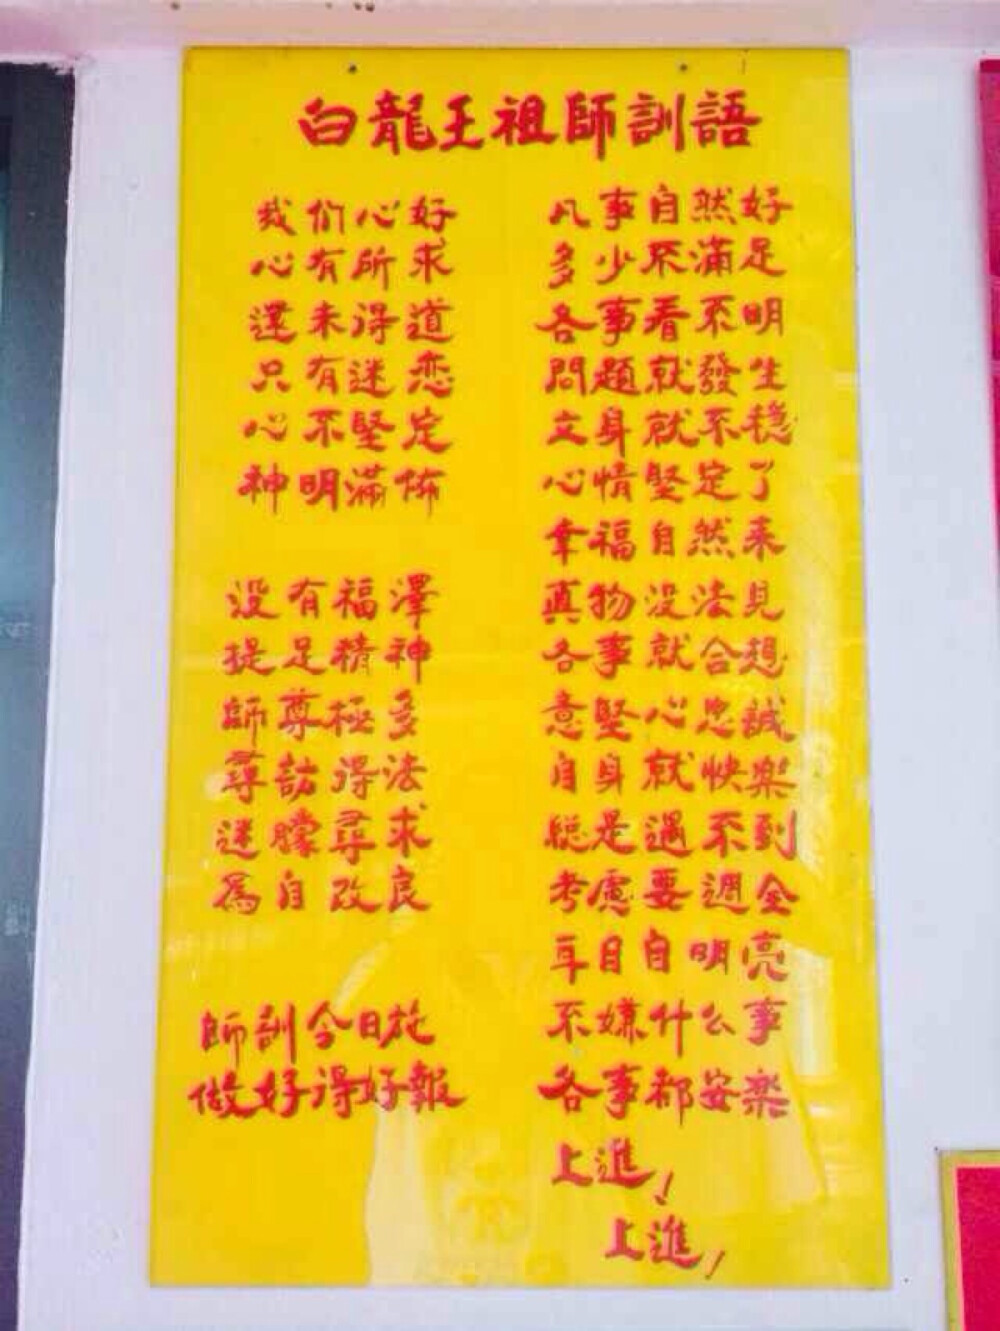 白龍王祖師訓語
我们心好
心有所求
還未得道
只有迷恋
心不堅定
神明滿佈
没有福澤
提足精神
師尊極多
尋訪得法
迷朦尋求
為自改良
師訓今日施
做好得好報
凡事自然好
多少不滿足
各事看不明
問題就發生
文身就不穏
心情堅定了
幸福自然来
真物没法見
各事就合想
意堅心忠誠
自身就快楽
総是遇不到
考慮要週全
耳目自明亮
不嫌什么事
各事都安楽
上進!
上進!